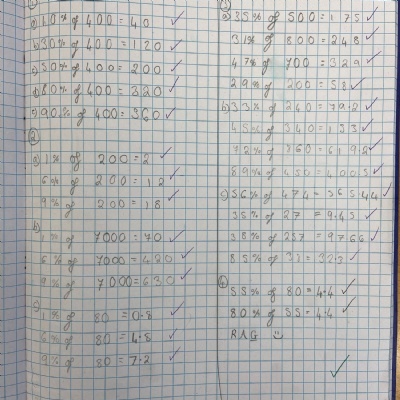 ①
a) 10% of 400 = 40
b) 30% of 400 = 120
c) 50% of 400 = 200
d) 80% of 400 = 320
e) 90% of 400 = 360
②
a) 1% of 200 = 2
6% of 200 = 12
9% of 200 = 18
b)
1% of 7000 = 70
6% of 7000 = 420
9% of 7000 = 630
c)
1% of 80 = 0.8
6% of 80 = 4.8
9% of 80 = 7.2
③
a) 35% of 500 = 175
31% of 800 = 248
47% of 700 = 329
29% of 200 = 58
b) 33% of 240 = 79.2
45% of 340 = 153
72% of 860 = 619.2
89% of 450 = 400.5
c)
35% of 27 = 9.45
of 287 = 97.66
85% of = 32.3
④
55% of 80 = 4.4
80% of 55 = 4.4
RAG